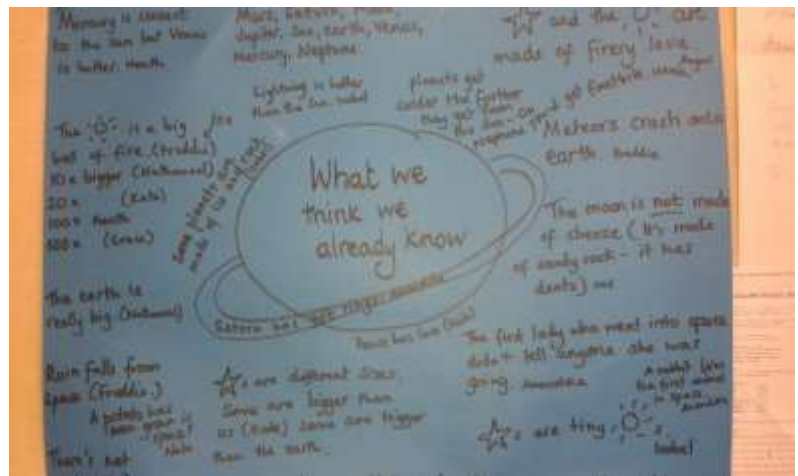 Mercury is closest
to the sun but Venus
is hotter. Heath
Mars, Saturn,
Jupiter, Sun, earth, Venus,
Mercury, Neptune
and the
are
made of firery lava
Lightning is hotter
than the sun. Isabel
planets get
colder the further
they get from
the sun - on
neptune you'd get
Meteors crash onto
earth. Freddie
The is a big
ball of fire. (Freddie)
10 x bigger (Nathanael)
20 x (Kate)
100 x Heath
500 x (Grace)
Some planets are
made of ice and rock
What we
think we
already know
The moon is not made
of cheese (it's made
of sandy rock - it has
dents)
The earth is
really big (Nathanael)
Saturn has got rings.
Venus has lava
The first lady who went into space
didn't tell anyone she was
going.
Rain falls from
space (Freddie.)
A potato has
been grown in
space!
There's not
s are different sizes.
Some are bigger than
us (Kate) some are bigger
than the earth.
the first animal
in space.
s are tiny
Isabel